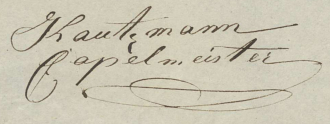 Kautzmann
Capelmeister